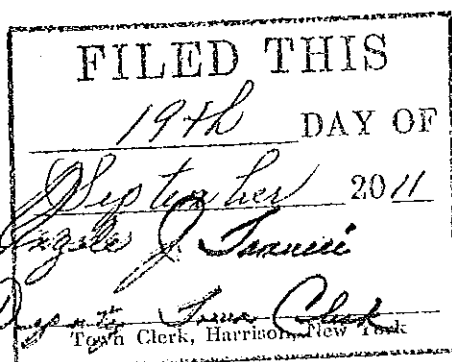 FILED THIS
19th DAY OF
September 2011
J.
Deputy Town Clerk
Town Clerk, Harrison, New York